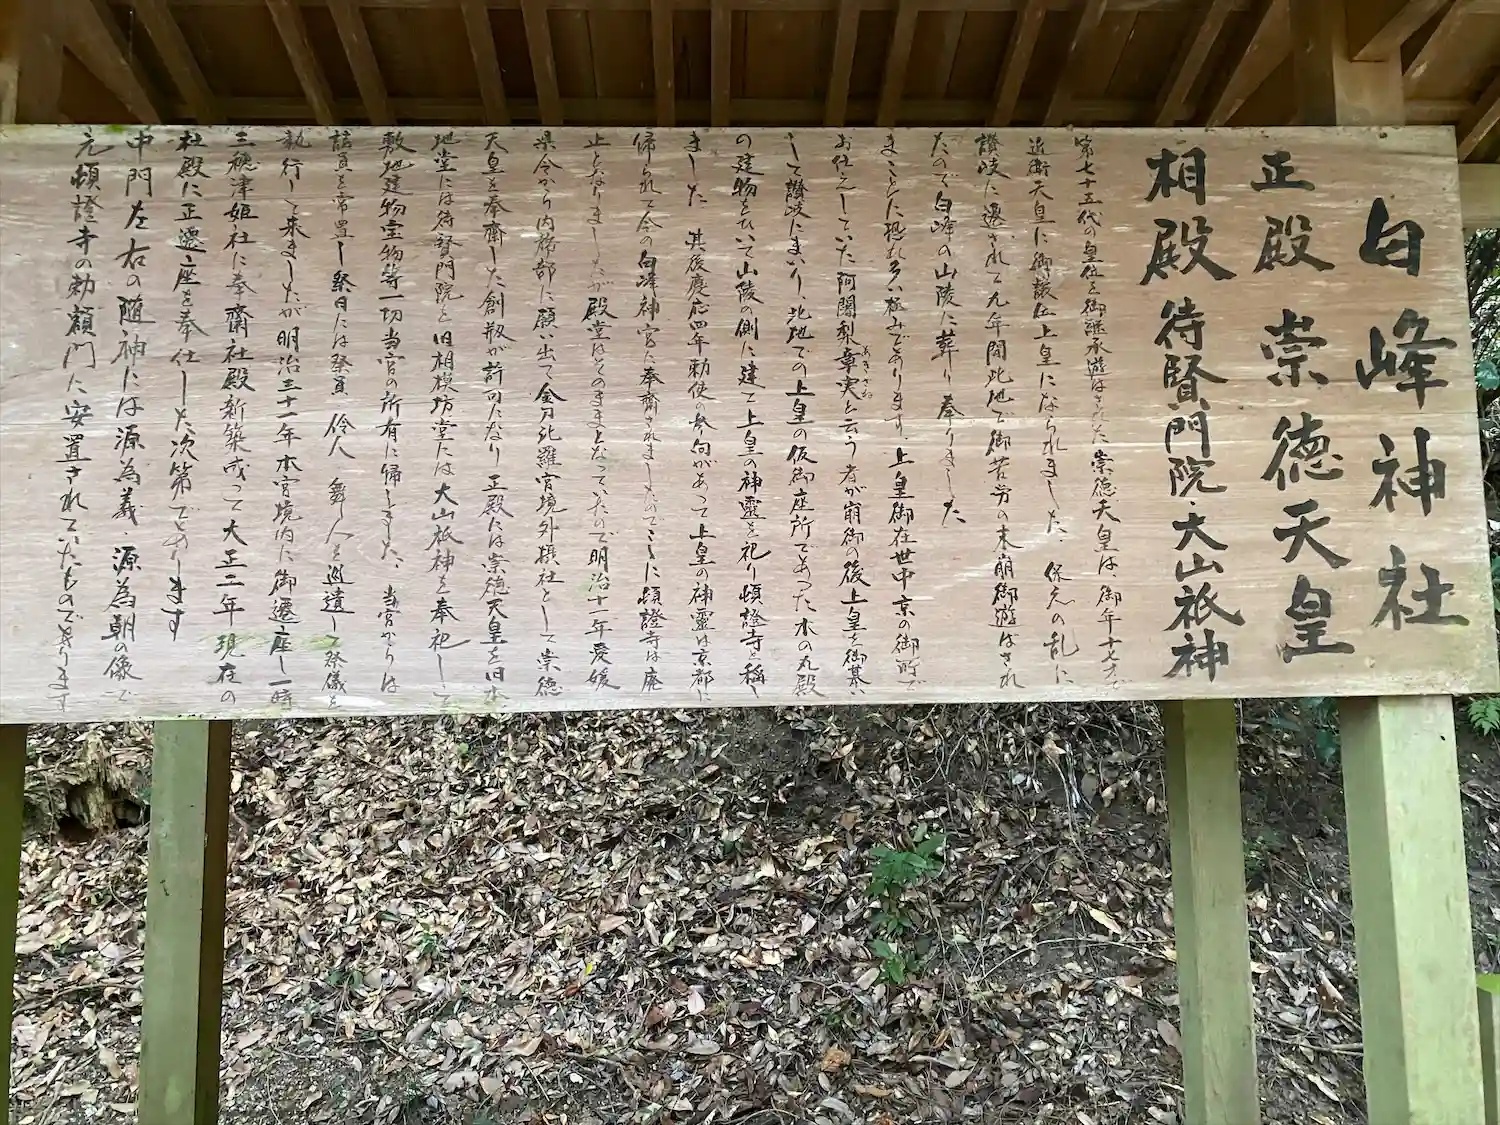 白峰神社
正殿 崇徳天皇
相殿 待賢門院・大山祇神
第七十五代の皇位を御継承遊ばされた崇徳天皇は、御年十七才で
近衛天皇に御譲位上皇になられました、保元の乱に
讃岐に遷されて九年間此地で御苦労の末崩御遊ばされ
たので白峰の山陵に葬り奉りました
まことに恐れ多い極みであります、上皇御在世中京の御所で
お仕えしていた阿闍梨章実と云う者が崩御の後上皇を御慕い
あきざね
して讃岐にまいり、此地での上皇の仮御座所であった木の丸殿
の建物をひいて山陵の側に建て上皇の神霊を祀り頓證寺と稱し
ました 其後慶応四年勅使の参向があって上皇の神霊は京都に
帰られて今の白峰神宮に奉齋されましたのでこゝに頓證寺は廃
止となりましたが殿堂はそのままとなっていたので明治十一年愛媛
県令から内務部に願い出て金刀比羅宮境外摂社として崇徳
天皇を奉齋した創祀が許可になり 正殿には崇徳天皇を旧本
地堂には待賢門院を旧相模坊堂には大山祇神を奉祀しその
敷地建物宝物等一切当宮の所有に帰しました、当宮からは
詰員を常置し祭日には祭員 伶人 舞人を巡遣して祭儀を
執行して来ましたが明治三十一年本宮境内に御遷座し一時
三穂津姫社に奉齋社殿新築成って大正二年 現在の
社殿に正遷座を奉仕した次第であります
中門左右の随神には源為義・源為朝の像で
元頓證寺の勅額門に安置されていたものであります